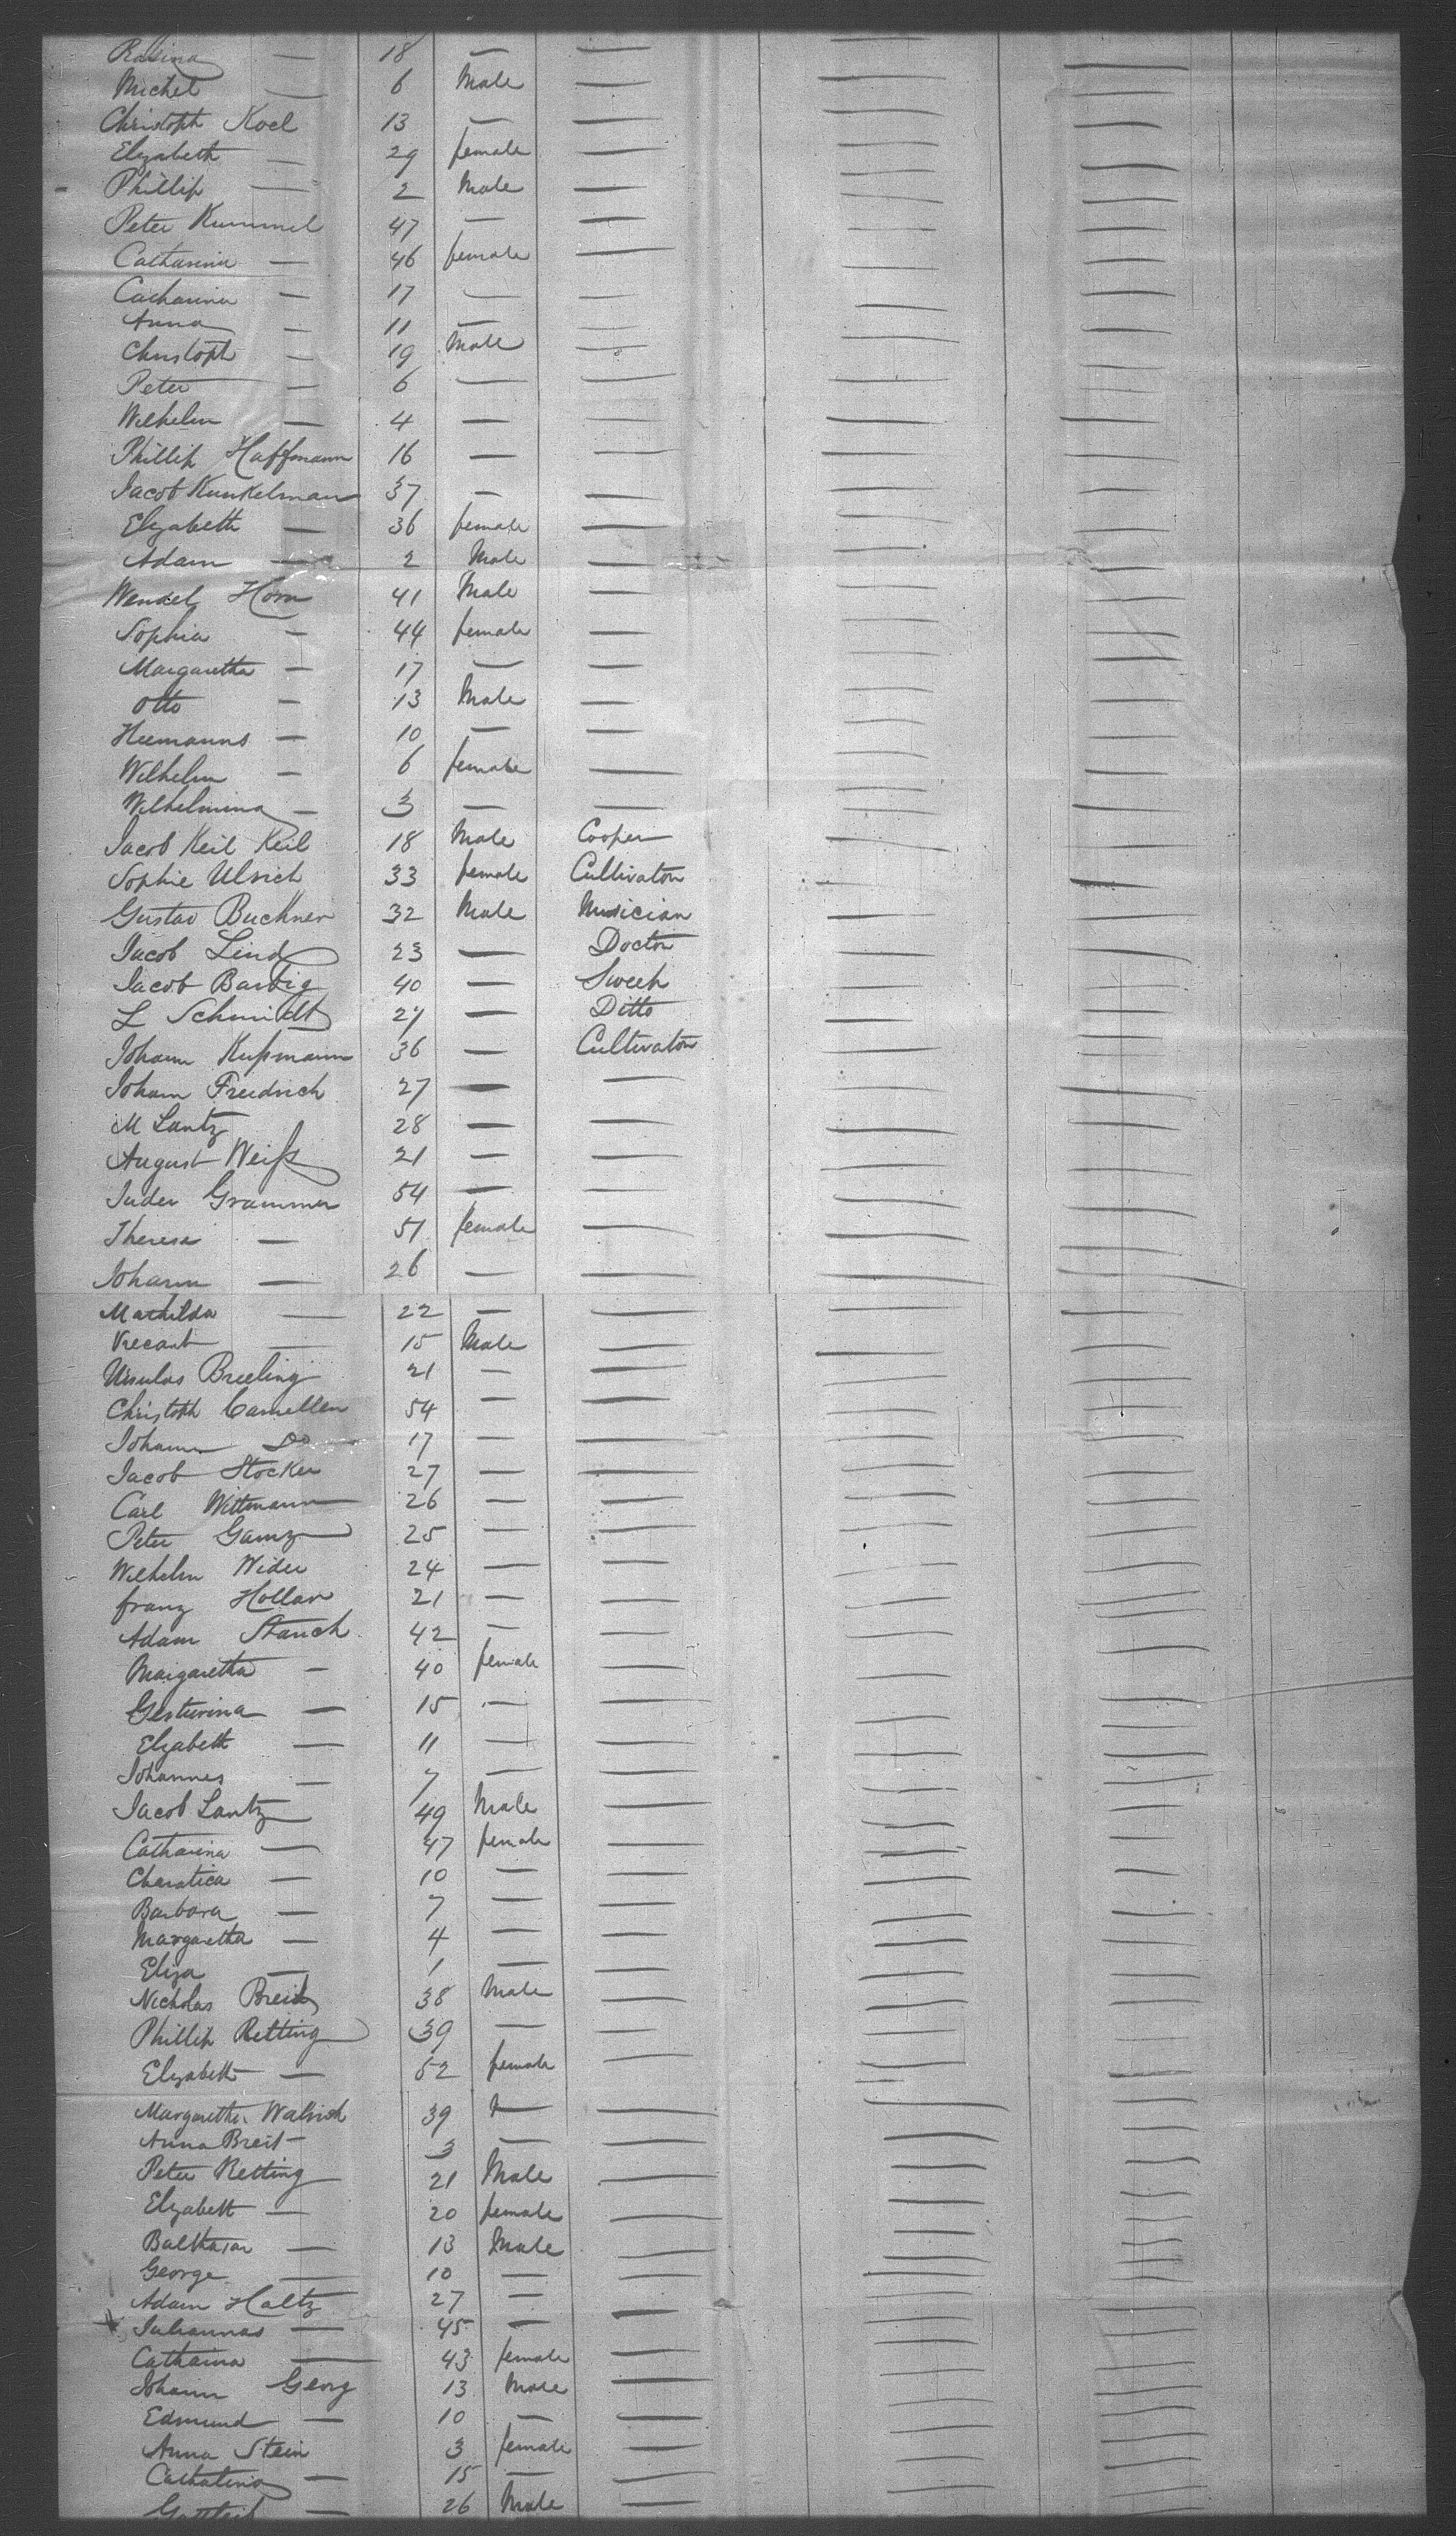 Rosina — 18 — —
Michel — 6 Male —
Christoph Koel 13 — —
Elizabeth — 29 female —
Phillip — 2 Male —
Peter Kummel 47 — —
Catharina — 46 female —
Catharina — 17 — —
Anna — 11 — —
Christoph — 19 Male —
Peter — 6 — —
Wilhelm — 4 — —
Phillip Haffmann 16 — —
Jacob Kunkelman 37 — —
Elizabeth — 36 female —
Adam — 2 Male —
Wenzel Horn 41 Male —
Sophia — 44 female —
Margaretha — 17 — —
Otto — 13 Male —
Hermanns — 10 — —
Wilhelm — 6 female —
Wilhelmina — 3 — —
Jacob Keil Keil 18 Male Cooper
Sophie Ulrich 33 female Cultivator
Gustav Buckner 32 Male Musician
Jacob Lind 23 — Doctor
Jacob Barbig 40 —
L Schmidt 27 — Ditto
Johann Kußmann 36 — Cultivator
Johann Freidrich 27 — —
M Lantz 28 — —
August Weiß 21 — —
Grammer 54 — —
Theresa — 51 female —
Johann — 26 — —
Mathilda — 22 — —
— 15 Male —
Ursulas Breeling 21 — —
Christoph Camellen 54 — —
Johann Do 17 — —
Jacob Stocker 27 — —
Carl Wittmann 26 — —
Peter Gamz 25 — —
Wilhelm Wider 24 — —
franz Hollar 21 — —
Adam Stauch 42 — —
Margaretha — 40 female —
— 15 — —
Elizabeth — 11 — —
Johannes — 7 — —
Jacob Lantz 49 Male —
Catharina — 47 female —
— 10 — —
Barbara — 7 — —
Margaretha — 4 — —
Eliza — 1 — —
Nicholas Breit 38 Male —
Phillip Retting 39 — —
Elizabeth — 52 female —
Margaretha 39 — —
Anna Breit 3 — —
Peter Retting 21 Male —
Elizabeth — 20 female —
Balthasar — 13 Male —
George — 10 — —
Adam Holtz 27 — —
Johannas — 45 — —
Catharina — 43 female —
Johann Georg 13 Male —
Edmund — 10 — —
Anna Stein 3 female —
Catharina — 15 — —
Gottleib — 26 Male —